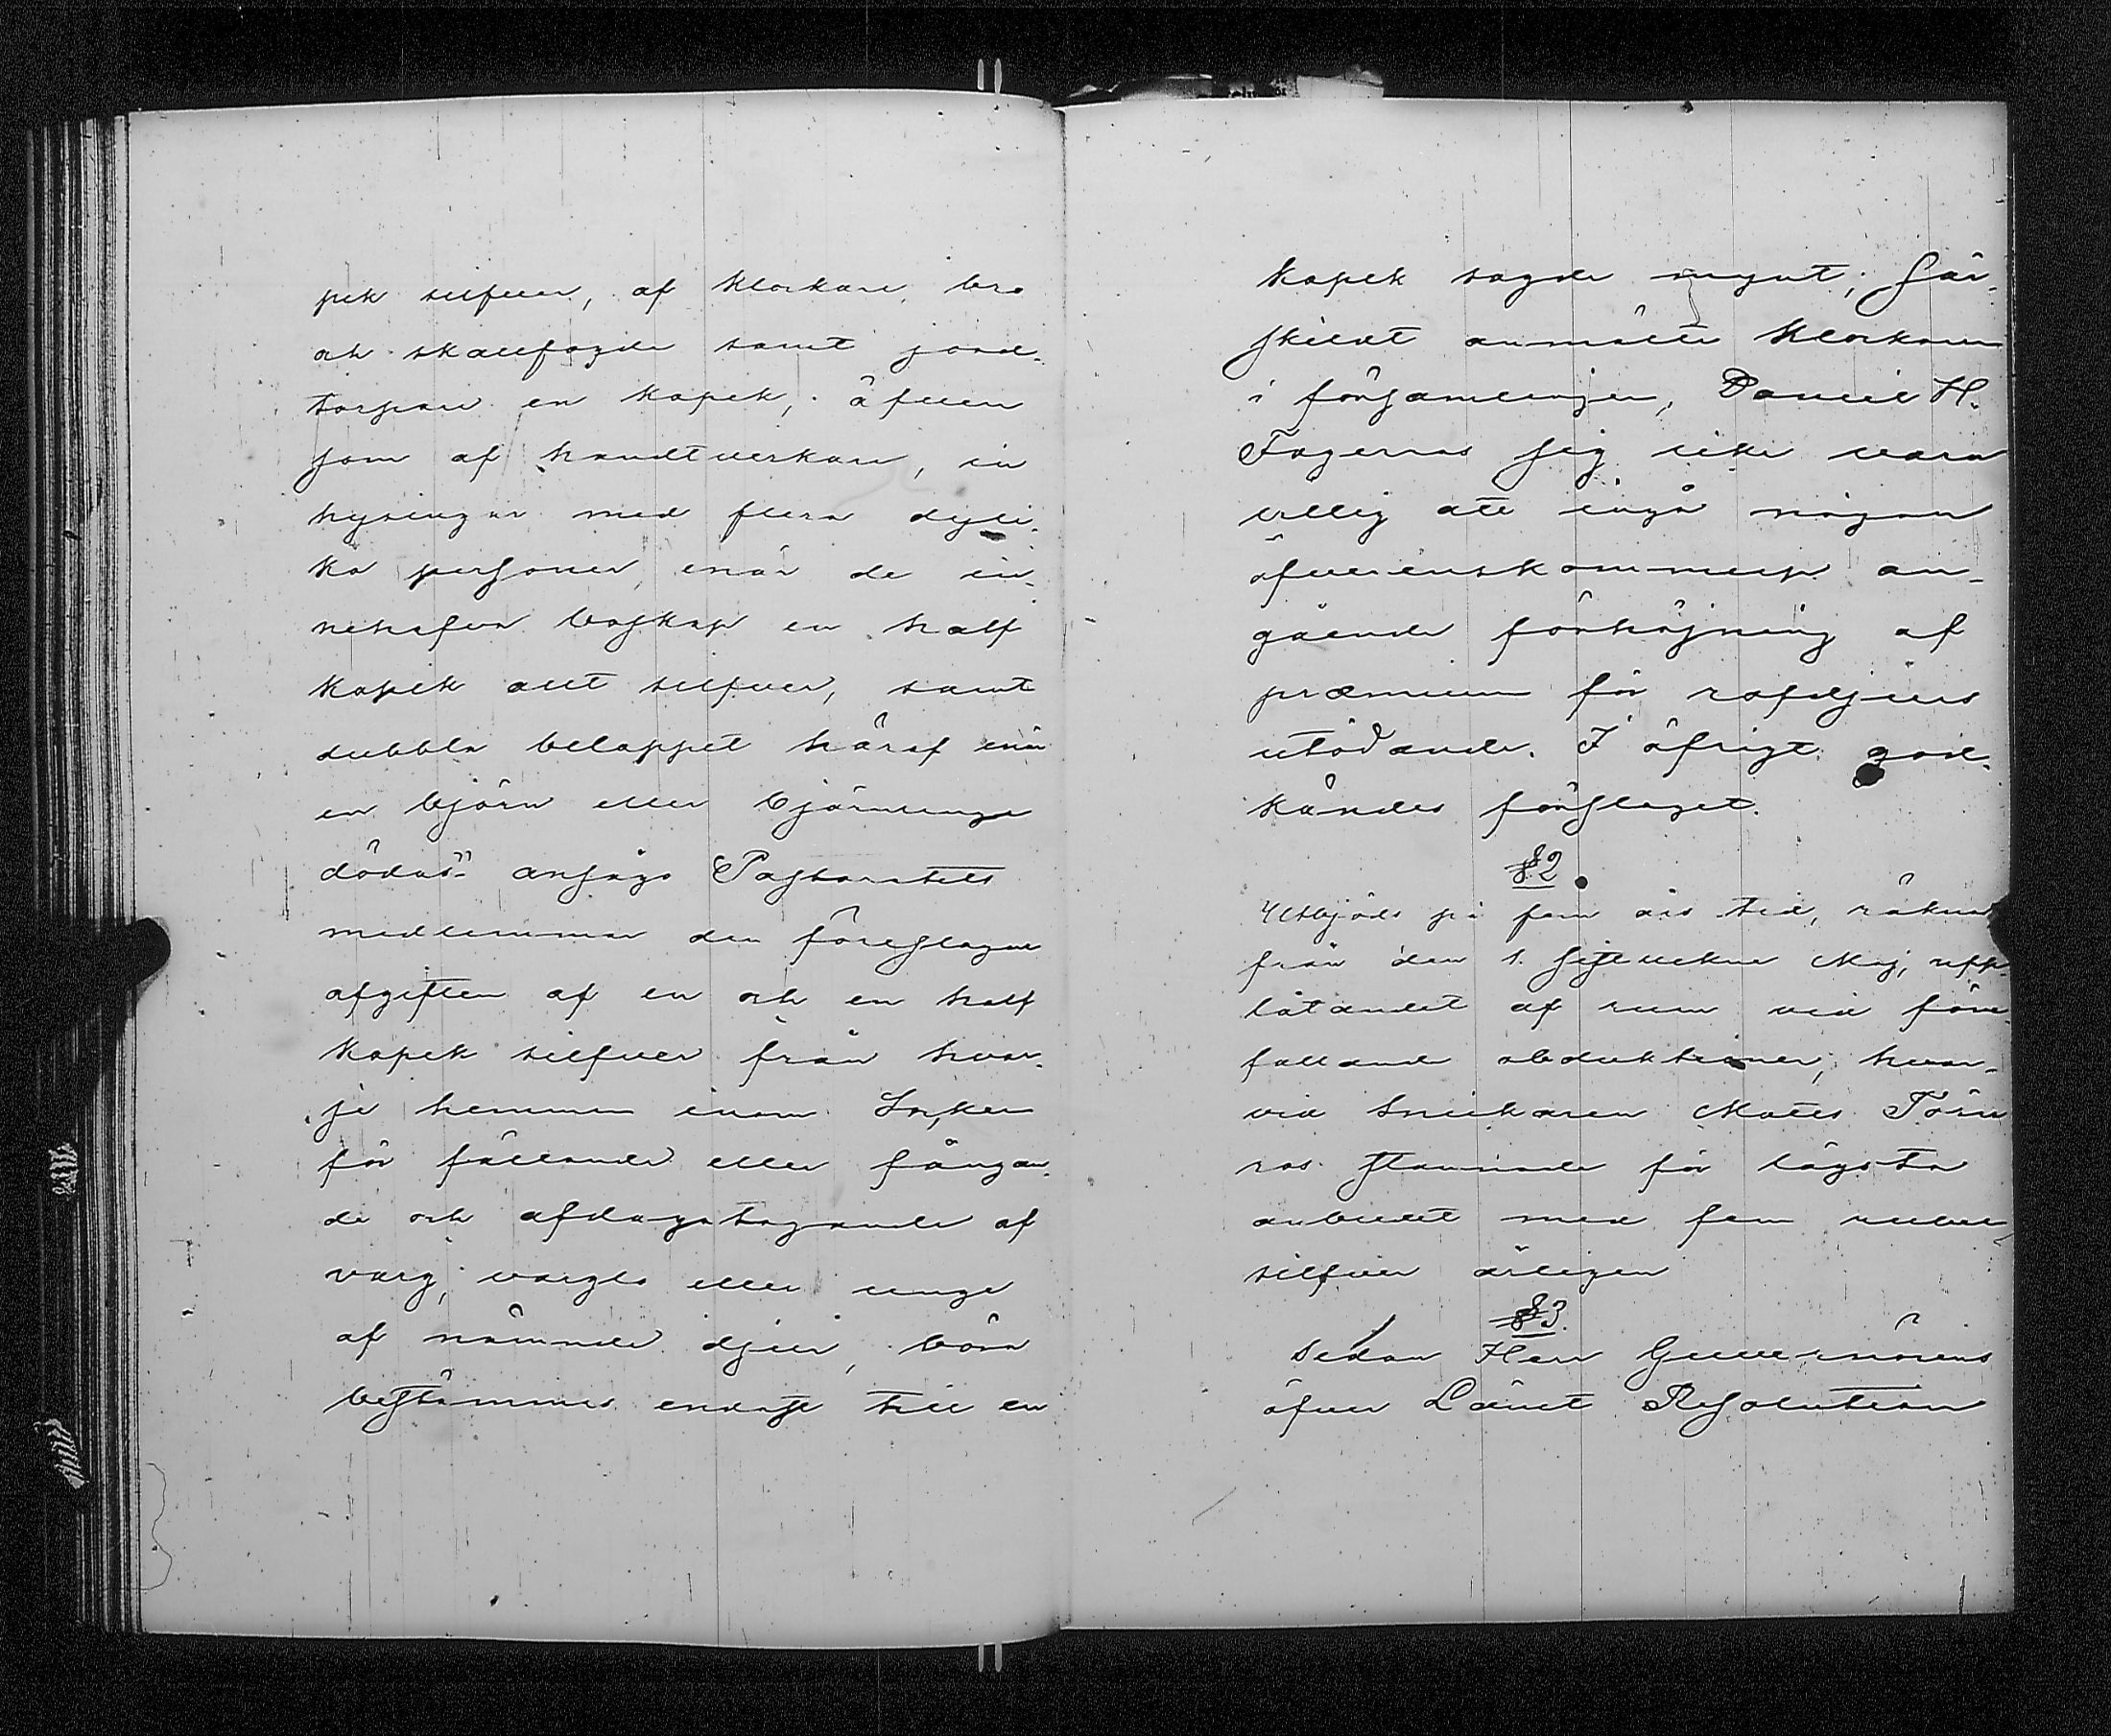 pek silfver, af klockare, bro
och skallfogde samt jord-
torpare en kopek, äfven
som af handtverkare, in
hysingar med flera dyli-
ka personer, enär de in-
nehafva boskap en half
kopek allt silfver, samt
dubbla beloppet häraf enär
en björn eller björnunge
dödas" ansågo Pastoratets
medlemmar den föreslagne
afgiften af en och en half
kopek silfver från hvar-
je hemman inom Socken
för fällande eller fångan-
de och afdagatagande af
varg, varglo eller unge
af nämnde djur, böra
bestämmas endast till en
kopek sagde mynt; Sär-
skildt anmälte klockaren
i församlingen, Daniel H.
Fagernäs sig icke vara
villig att ingå någon
öfverenskommelse an-
gående förhöjning af
præmium för rofdjurs
utödande. I öfrigt god-
kändes förslaget.
§2
Utbjöds på fem års tid, räknad
från den 1. sistvekne Maj, upp-
låtandet af rum vid före-
fallande obduktioner, hvar-
vid Snickaren Matts Törn
ros stannade för lägsta
anbudet med fem rubel
silfver årligen
§3.
Sedan Herr Guvernörens
öfver Länet Resolution